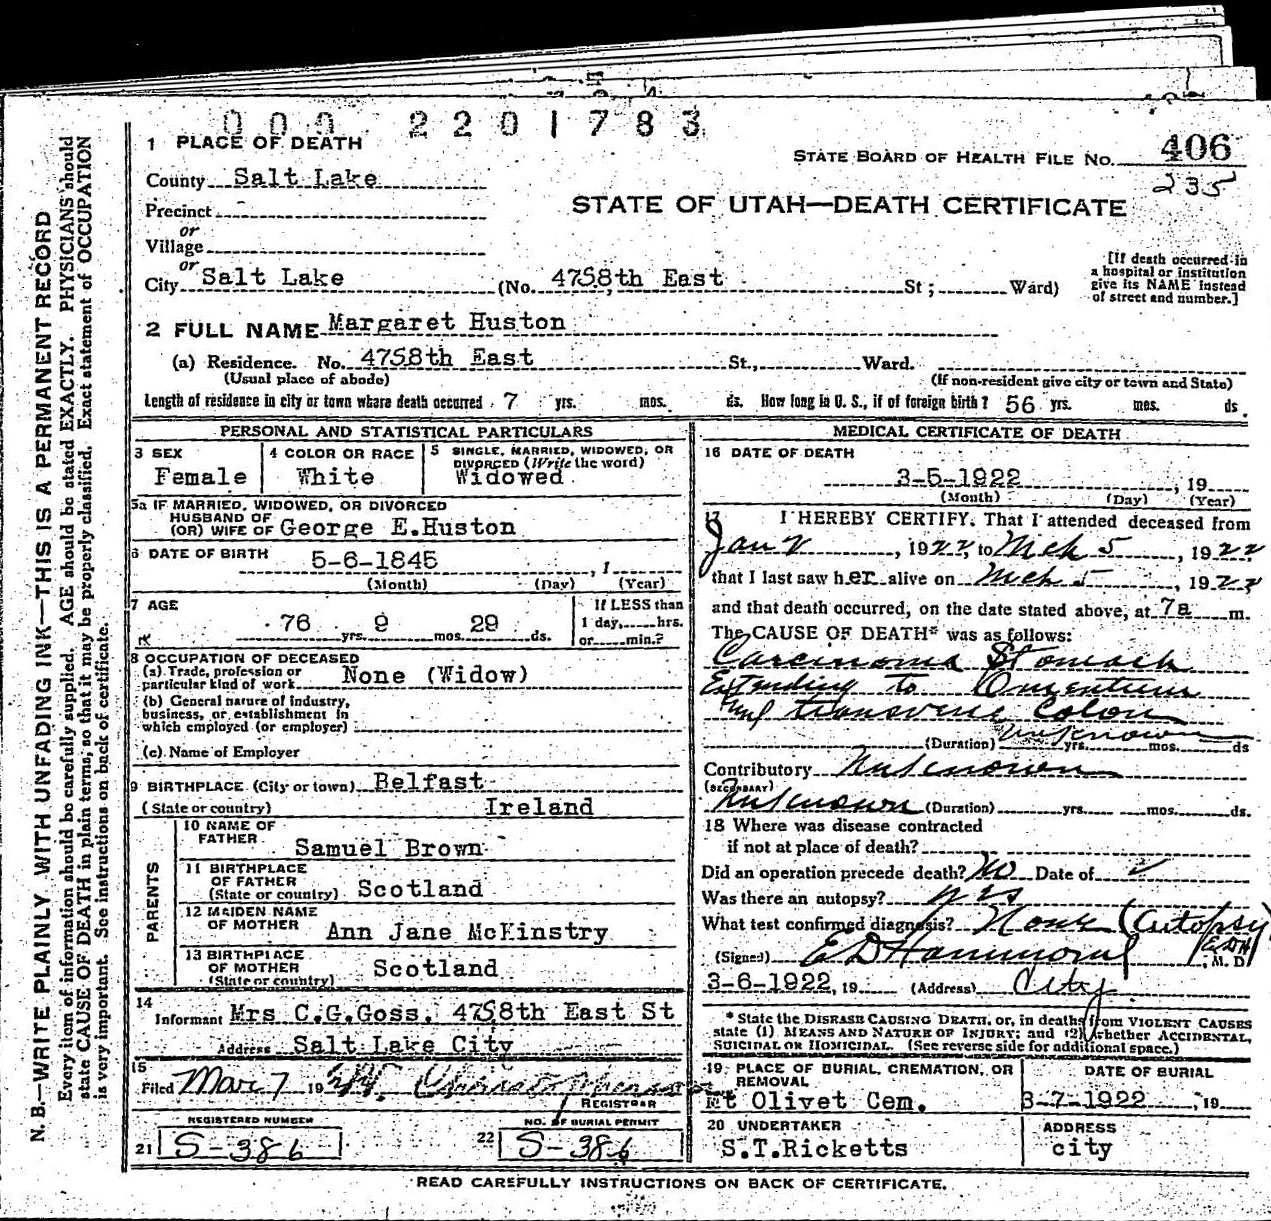 000 2201783
1 PLACE OF DEATH
STATE BOARD OF HEALTH FILE NO. 406
235
County Salt Lake
STATE OF UTAH—DEATH CERTIFICATE
Precinct
or
Village
or
City Salt Lake (No. 4758th East St; Ward)
[If death occurred in
a hospital or institution
give its NAME instead
of street and number.]
2 FULL NAME Margaret Huston
(a) Residence. No. 4758th East St., Ward.
(Usual place of abode) (If non-resident give city or town and State)
Length of residence in city or town where death occurred 7 yrs. mos. ds. How long in U. S., if of foreign birth? 56 yrs. mes. ds.
PERSONAL AND STATISTICAL PARTICULARS
3 SEX
Female
4 COLOR OR RACE
White
5 SINGLE, MARRIED, WIDOWED, OR
DIVORCED (Write the word)
Widowed
5a IF MARRIED, WIDOWED, OR DIVORCED
HUSBAND OF
(OR) WIFE OF George E.Huston
6 DATE OF BIRTH 5-6-1845 , 1
(Month) (Day) (Year)
7 AGE
76 yrs. 9 mos. 29 ds.
If LESS than
1 day, hrs.
or min.?
8 OCCUPATION OF DECEASED
(a) Trade, profession or
particular kind of work None (Widow)
(b) General nature of industry,
business, or establishment in
which employed (or employer)
(c) Name of Employer
9 BIRTHPLACE (City or town) Belfast
(State or country) Ireland
PARENTS
10 NAME OF
FATHER Samuel Brown
11 BIRTHPLACE
OF FATHER
(State or country) Scotland
12 MAIDEN NAME
OF MOTHER Ann Jane McKinstry
13 BIRTHPLACE
OF MOTHER
(State or country) Scotland
14
Informant Mrs C.G.Goss. 4758th East St
Address Salt Lake City
15
Filed Mar 7 19
REGISTRAR
REGISTERED NUMBER
21 S-386
NO. OF BURIAL PERMIT
22 S-386
MEDICAL CERTIFICATE OF DEATH
16 DATE OF DEATH
3-5-1922 , 19
(Month) (Day) (Year)
17 I HEREBY CERTIFY. That I attended deceased from
Jan , 1922, to Mch 5 , 1922
that I last saw her alive on Mch 5 , 1922
and that death occurred, on the date stated above, at 7a m.
The CAUSE OF DEATH* was as follows:
Carcinoma Stomach
Extending to Omentum
and transverse Colon
(Duration) unknown yrs. mos. ds
Contributory Unknown
(SECONDARY)
Unknown (Duration) yrs. mos. ds.
18 Where was disease contracted
if not at place of death?
Did an operation precede death? No Date of
Was there an autopsy? yes
What test confirmed diagnosis? None (Autopsy)
EDH
(Signed) E D Hammond , M. D
3-6-1922, 19 (Address) City
* State the DISEASE CAUSING DEATH, or, in deaths from VIOLENT CAUSES
state (1) MEANS AND NATURE OF INJURY; and (2) whether ACCIDENTAL,
SUICIDAL OR HOMICIDAL. (See reverse side for additional space.)
19 PLACE OF BURIAL, CREMATION, OR
REMOVAL
Mt Olivet Cem.
DATE OF BURIAL
3-7-1922 , 19
20 UNDERTAKER
S.T.Ricketts
ADDRESS
city
READ CAREFULLY INSTRUCTIONS ON BACK OF CERTIFICATE.
N. B.—WRITE PLAINLY WITH UNFADING INK—THIS IS A PERMANENT RECORD
Every item of information should be carefully supplied. AGE should be stated EXACTLY. PHYSICIANS should
state CAUSE OF DEATH in plain terms, so that it may be properly classified. Exact statement of OCCUPATION
is very important. See instructions on back of certificate.